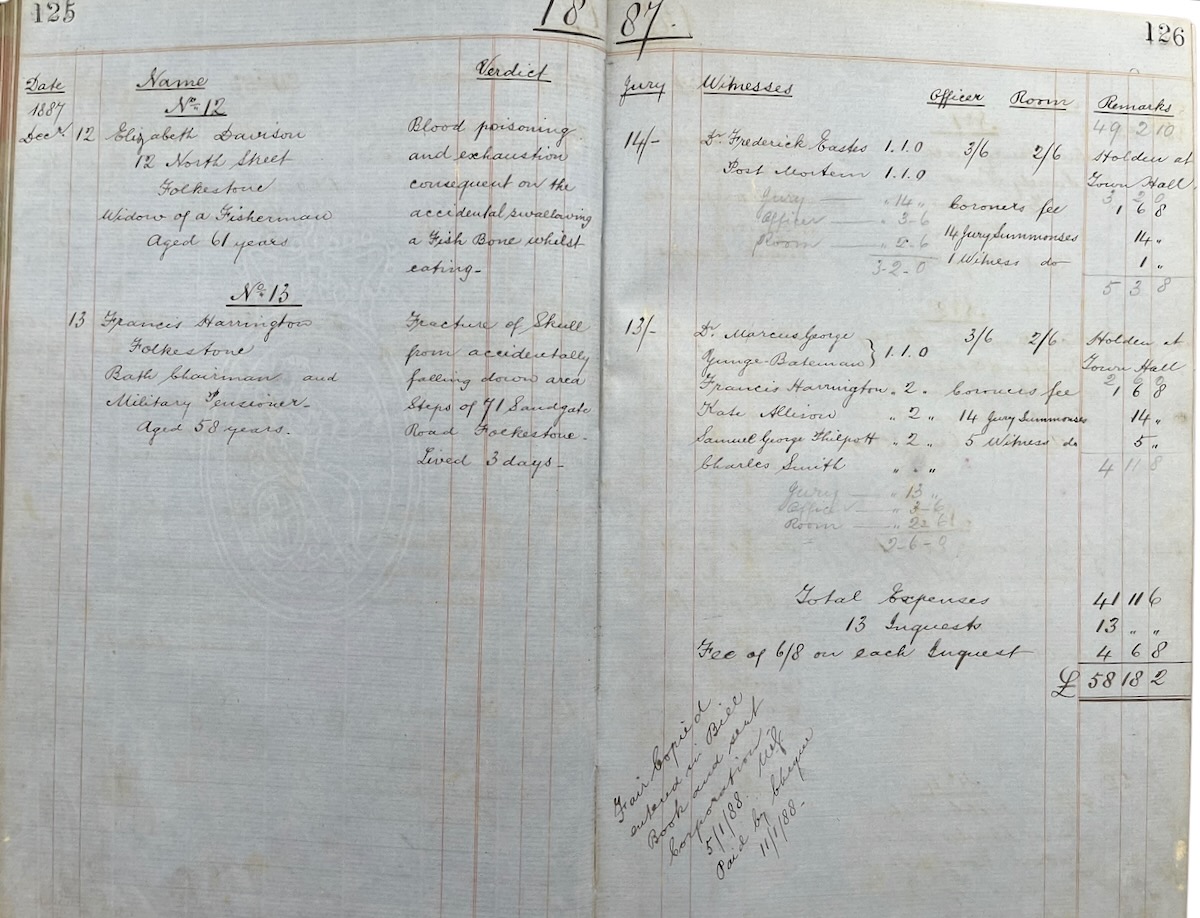 125
18
Date
Name
Verdict
1887
No. 12
Decr. 12 Elizabeth Davison
12 North Street
Folkestone
Widow of a Fisherman
Aged 61 years
Blood poisoning
and exhaustion
consequent on the
accidental swallowing
a Fish Bone whilst
eating-
No. 13
13 Francis Harrington
Folkestone
Bath Chairman and
Military Pensioner-
Aged 58 years-
Fracture of Skull
from accidentally
falling down area
Steps of 71 Sandgate
Road Folkestone-
Lived 3 days-
87.
126
Jury
Witnesses
Officer
Room
Remarks
49 2 10
14/- Dr. Frederick Eastes 1.1.0 3/6 2/6 Holden at
Post Mortem 1.1.0 Town Hall
3 2 0
Jury — " 14 " Coroners fee 1 6 8
Officer — " 3-6 14 Jury Summonses 14 "
Room — " 2-6 1 Witness do 1 "
3-2-0
5 3 8
13/- Dr. Marcus George
Yunge-Bateman } 1.1.0 3/6 2/6 Holden at
Town Hall
2 6 0
Francis Harrington " 2 " Coroners fee 1 6 8
Kate Allison " 2 " 14 Jury Summonses 14 "
Samuel George Philpott " 2 " 5 Witness do 5 "
Charles Smith " " "
4 11 8
Jury — " 13 "
Officer — " 3-6
Room — " 2-6
2-6-0
Total Expenses 41 11 6
13 Inquests 13 " "
Fee of 6/8 on each Inquest 4 6 8
£ 58 18 2
Fair Copied
entered in Bill
Book and sent
Corporation
5/1/88.
Paid by Cheque
11/1/88-